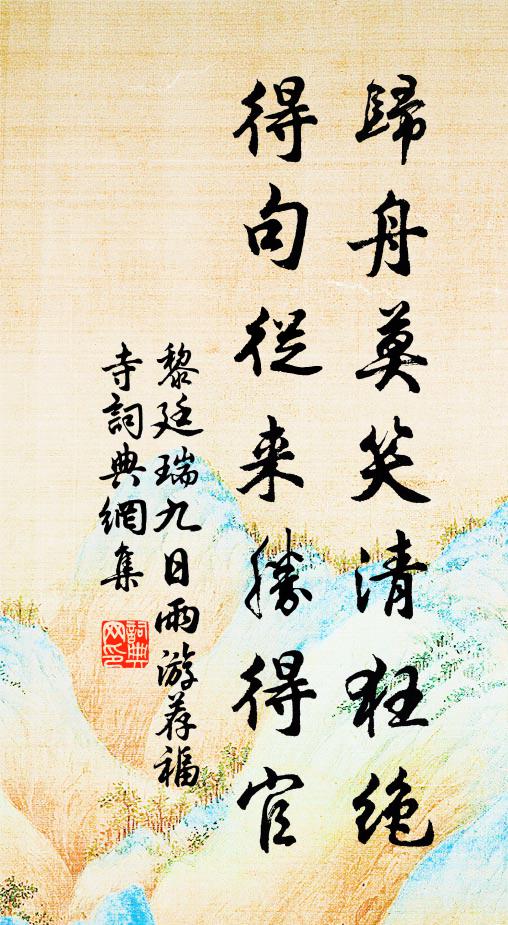 歸舟莫笑清狂绝
得句從来勝得官
黎廷瑞九日雨游荐福
寺詞典網集
詞典
网印